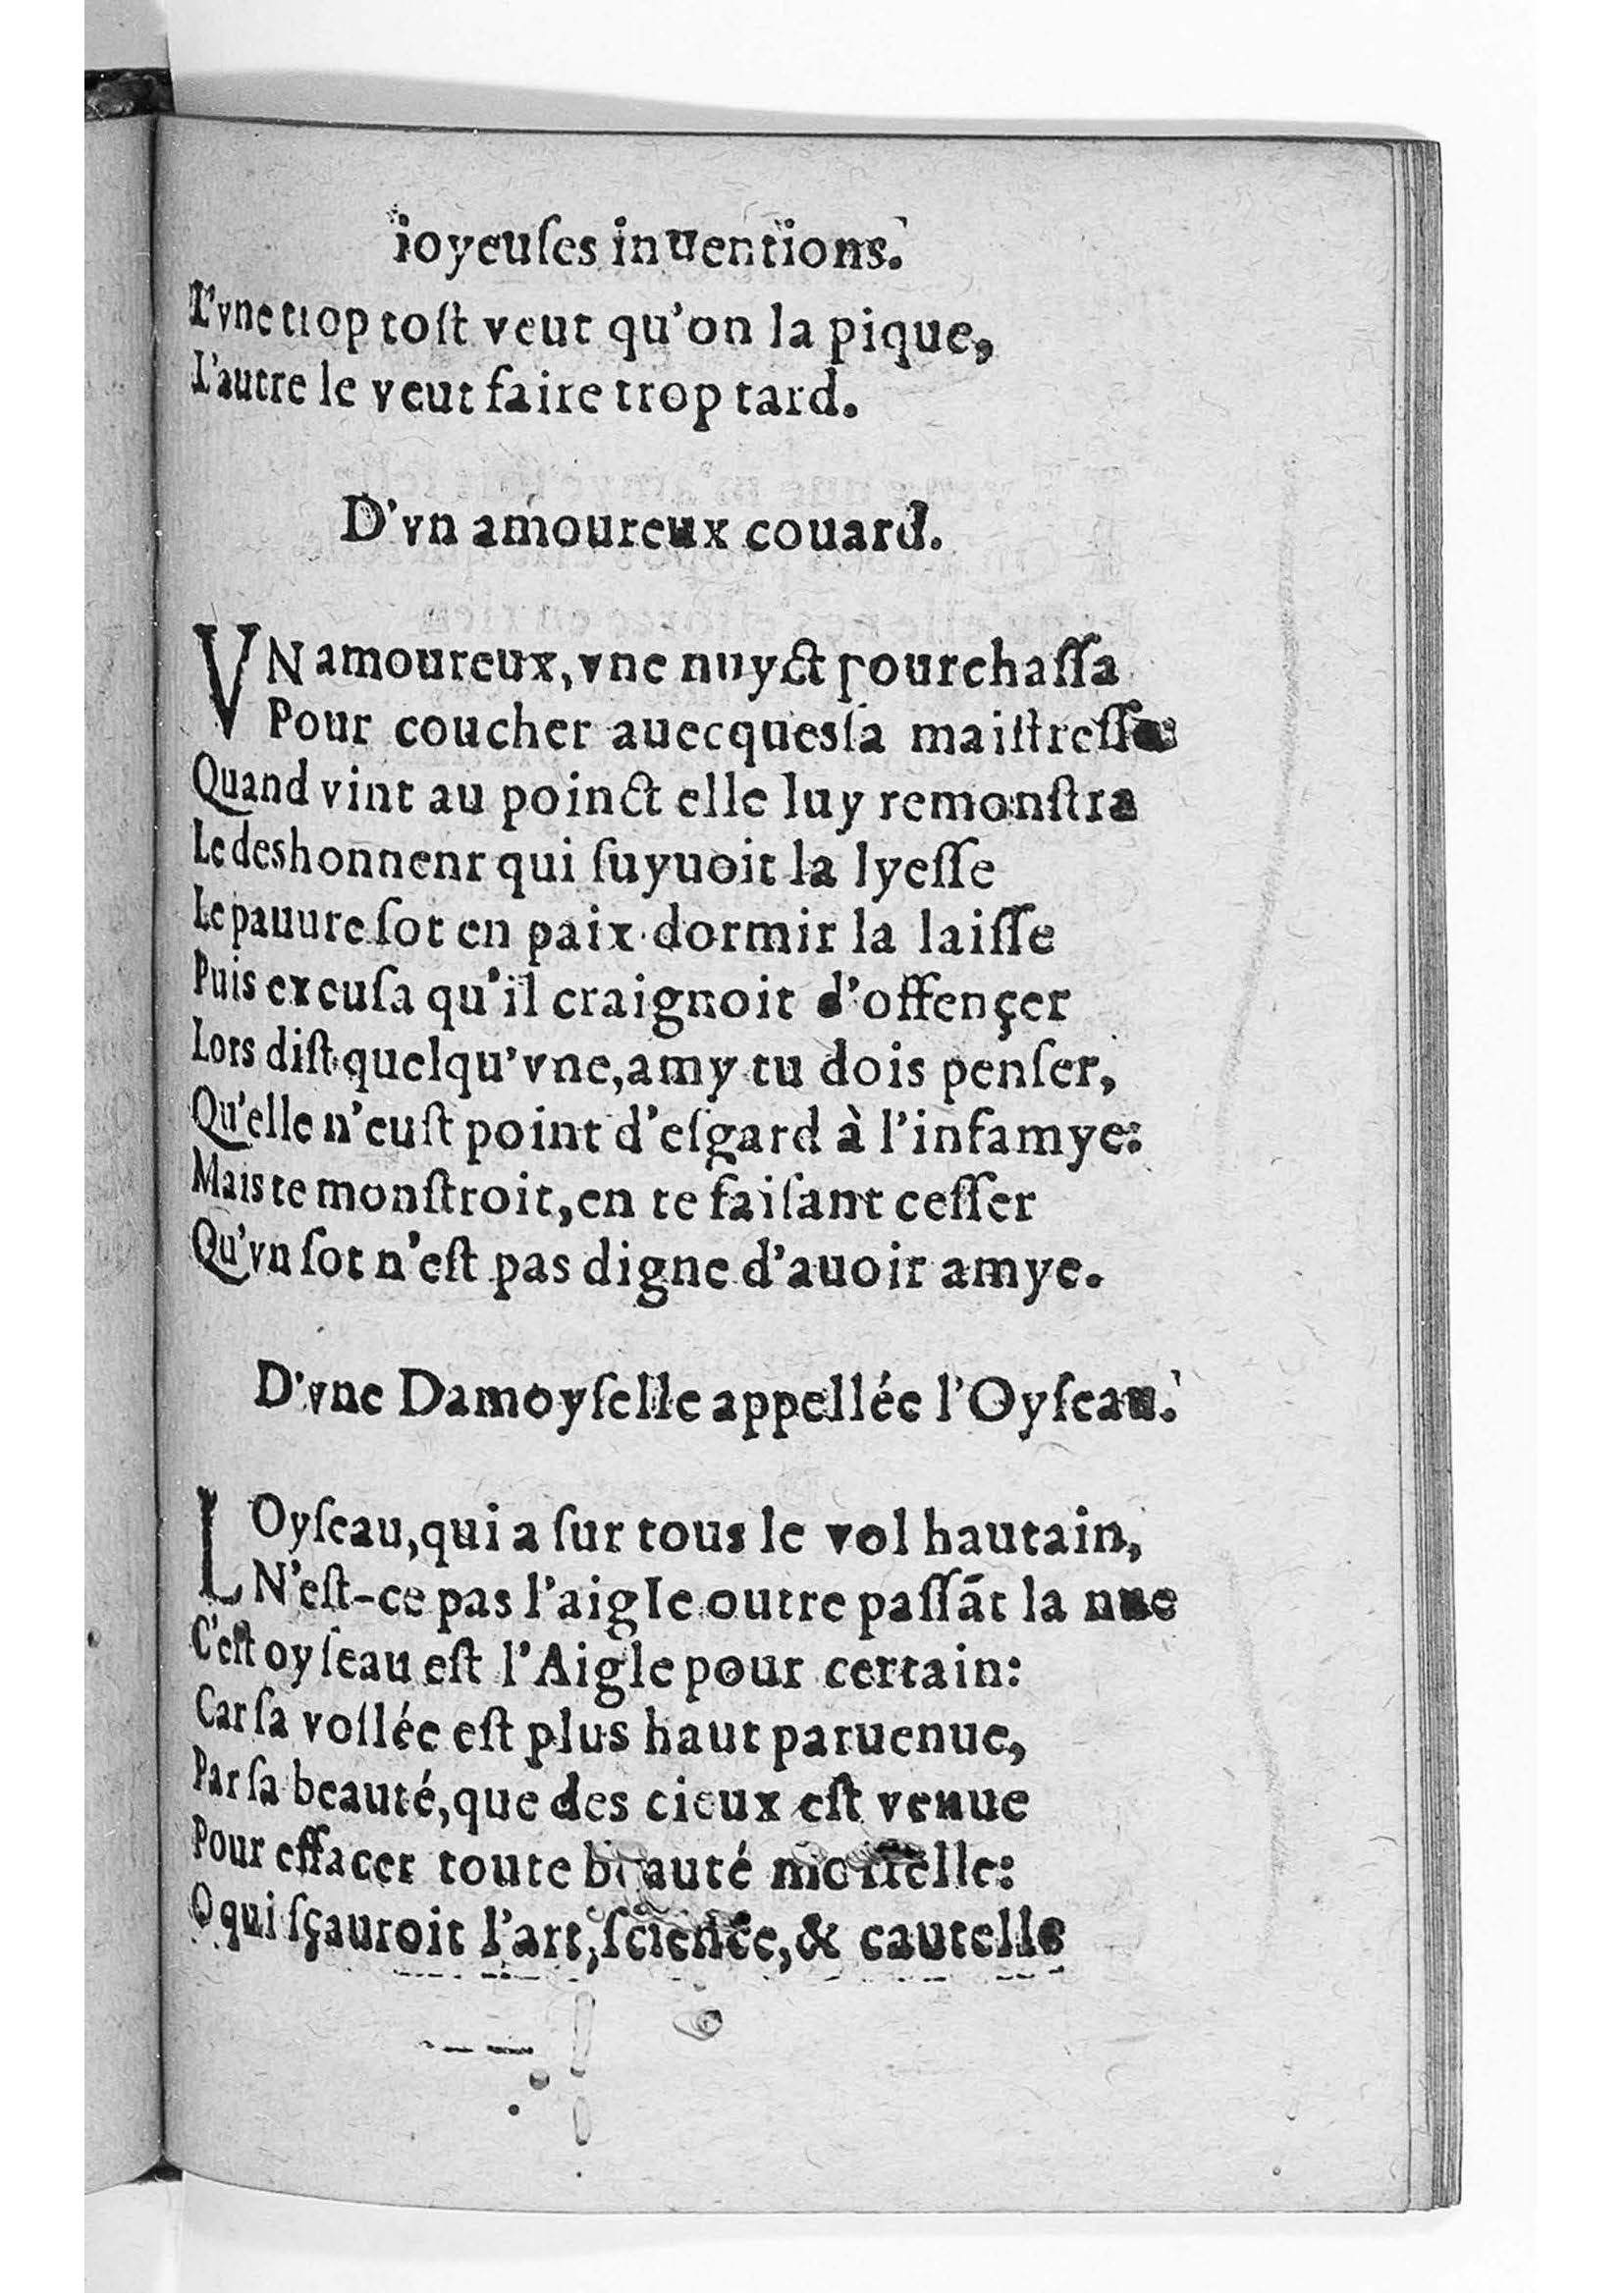 ioyeuſes inuentions.
L'vne trop toſt veut qu'on la pique,
L'autre le veut faire trop tard.
D'vn amoureux couard.
VN amoureux, vne nuyct pourchaſſa
Pour coucher auecques ſa maiſtreſſe
Quand vint au poinct elle luy remonſtra
Le deshonnenr qui ſuyuoit la lyeſſe
Le pauure ſot en paix dormir la laiſſe
Puis excuſa qu'il craignoit d'offençer
Lors diſt quelqu'vne, amy tu dois penſer,
Qu'elle n'euſt point d'eſgard à l'infamye:
Mais te monſtroit, en te faiſant ceſſer
Qu'vn ſot n'eſt pas digne d'auoir amye.
D'vne Damoyſelle appellée l'Oyſeau.
L'Oyſeau, qui a ſur tous le vol hautain,
N'eſt-ce pas l'aigle outre paſſāt la nue
C'eſt oyſeau eſt l'Aigle pour certain:
Car ſa vollée eſt plus haut paruenue,
Par ſa beauté, que des cieux eſt venue
Pour effacer toute beauté mortelle:
O qui ſçauroit l'art, ſcience, & cautelle